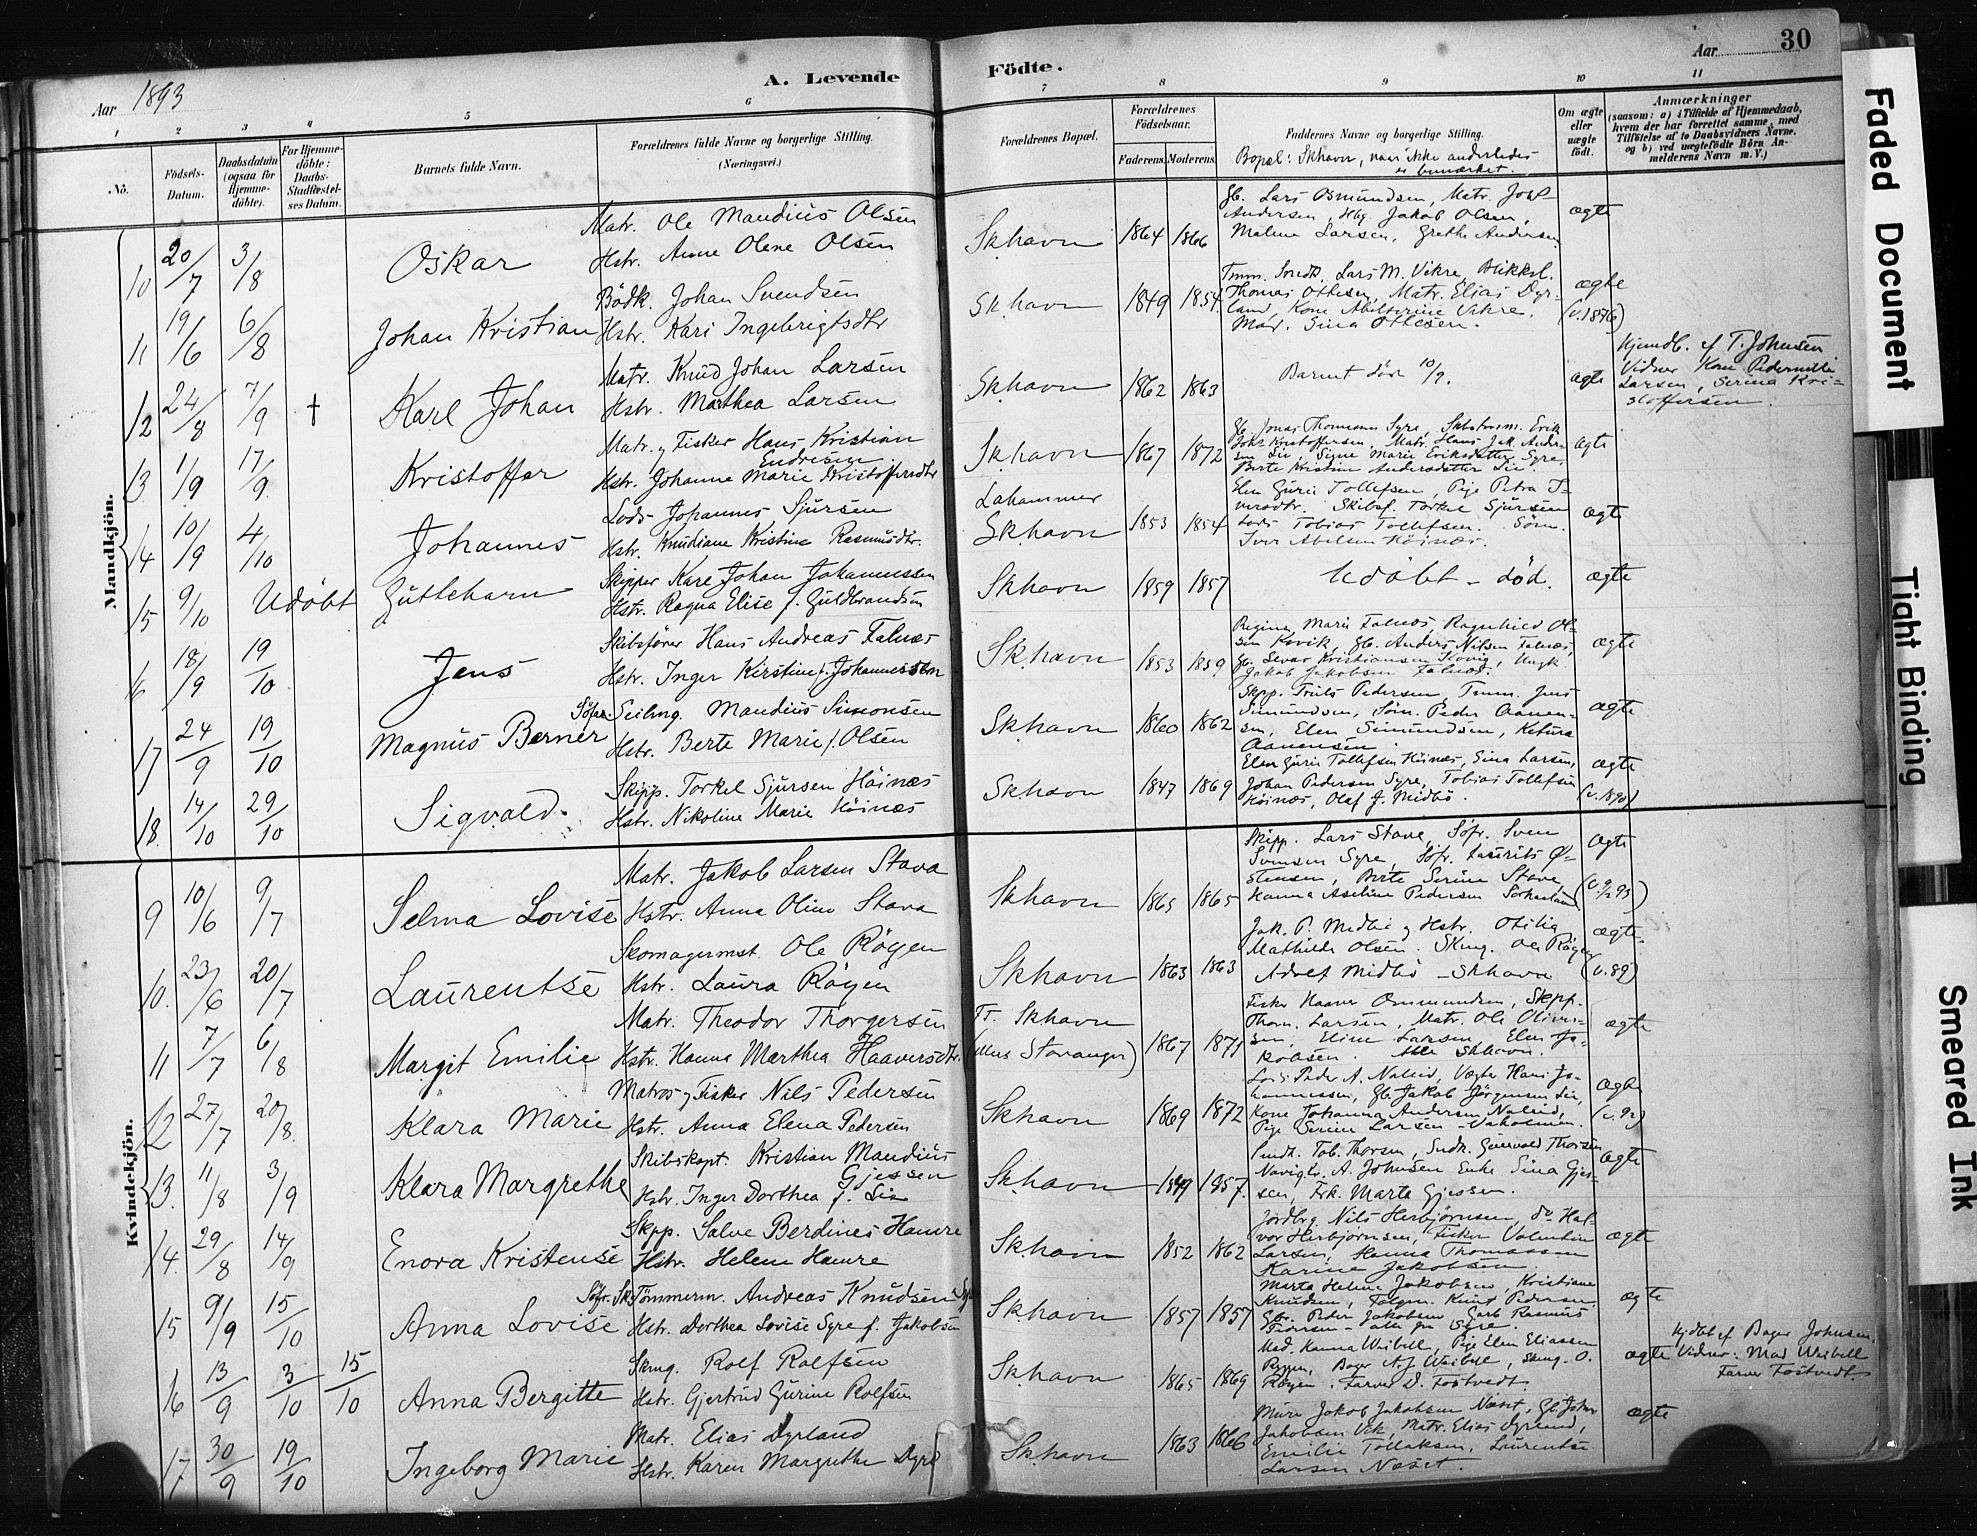 Aar 1893
A. Levende Födte.
Aar 30
1 2 3 4 5 6 7 8 9 10 11
No.
Födsels-Datum.
Daabsdatum (ogsaa for Hjemme-döbte).
For Hjemme-döbte: Daabs-Stadfæstel-ses Datum.
Barnets fulde Navn.
Forældrenes fulde Navne og borgerlige Stilling. (Næringsvei.)
Forældrenes Bopæl.
Forældrenes Födselsaar.
Faderens. Moderens.
Faddernes Navne og borgerlige Stilling.
Bopæl: Skhavn, naar ikke anderledes er bemærket.
Om ægte eller uægte födt.
Anmærkninger
(saasom: a) i Tilfælde af Hjemmedaab,
hvem der har forrettet samme, med
Tilföielse af to Daabsvidners Navne.
og b) ved uægtefödte Börn An-
melderens Navn m. V.)
Mandkjön.
10 20/7 3/8 Oskar
Matr. Ole Mandius Olsen
Hstr. Anne Olene Olsen
Skhavn 1864 1866
Gb. Lars Osmundsen, Matr. Joh
Andersen, Hbg. Jakob Olsen,
Malene Larsen, Grethe Andersen
ægte
11 19/6 6/8 Johan Kristian
Bödk. Johan Svendsen
Hstr. Kari Ingebrigtsdtr
Skhavn 1849 1854
Tmm. Lars M. Vikre, Blikksl.
Thomas Ottesen, Matr. Elias Dyr-
land, Kone Vikre.
Mad. Sina Ottesen.
ægte
(v. 1876)
12 24/8 7/9 † Karl Johan
Matr. Knud Johan Larsen
Hstr. Marthea Larsen
Skhavn 1862 1863
Barnet död 10/9.
ægte
Hjemdb. af T. Johnsen
Vidner Kone Pedernille
Larsen, Serina Kri-
stoffersen.
13 1/9 17/9 Kristoffer
Matr. og Fisker Hans Kristian
Endresen.
Hstr. Johanne Marie Kristoffersdtr
Skhavn 1867 1872
Gb. Jonas Thomasen Syre, Skbstmm. Erik
Johs Kristoffersen, Matr. Hans Jak. Ander-
sen Lie, Signe Marie Eriksdatter Syre,
Berte Kristine Andersdatter Lie.
ægte
14 10/9 4/10 Johannes
Lods Johannes Sjursen
Hstr. Knudiane Kristine Rasmusdtr.
Lahammer
Skhavn 1853 1854
Elen Gurie Tollefsen, Pige Petra T-
Skibsf. Torkel Sjursen
Lods Tobias Tollefsen. Söm.
Iver Abelsen Höinæs.
ægte
15 9/10 Udöbt Guttebarn
Skipper Karl Johan Johannessen
Hstr. Ragna Elise f. Guldbrandsen
Skhavn 1859 1857
Udöbt - död.
ægte
16 18/9 19/10 Jens
Skibsförer Hans Andreas Falnæs
Hstr. Inger Kirstine f. Johannessen
Skhavn 1853 1859
Regine Marie Falnæs Ragnhild Ol-
sen Kvvik, Gb. Anders Nilsen Falnæs,
Gb. Sevar Kristiansen Kovig, Ungk.
Jakob Jakobsen Falnæs.
ægte
17 24/9 19/10 Magnus Berner
Söfar. Seilmg. Mandius Simonsen
Hstr. Berte Marie f. Olsen
Skhavn 1860 1862
Skpp. Truls Pedersen, Tmm. Jens
Simundsen, Söm. Peder Aanen-
sen, Elen Simundsen, Ketura
Aanensen.
ægte
18. 14/10 29/10 Sigvald.
Skipp. Torkel Sjursen Höinæs
Hstr. Nikoline Marie Höinæs
Skhavn 1847 1869
Elen Gurie Tollefsen Höinæs, Sina Larsen,
Johan Pedersen Syre, Tobias Tollefsen
Höinæs, Olaf J. Midbö.
ægte
(v. 1890)
Kvindekjön.
9 10/6 9/7 Selma Lovise
Matr. Jakob Larsen Stava
Hstr. Anna Oline Stava
Skhavn 1865 1865
Skipp. Lars Stave, Söfr. Sven
Svendsen Syre, Söfr. Laurits Ø-
stensen, Berte Serine Stave
Hanna Aseline Pedersen
ægte
10. 23/6 20/7 Laurentse
Skomagermst. Ole Røgen
Hstr. Laura Røgen
Skhavn 1863 1863
Jak. P. Midbö og Hstr. Otilia
Mathilde Olsen. Skmg. Ole Røgen
Adolf Midbö - Skhavn
ægte.
(v. 89)
11 7/7 6/8 Margit Emilie
Matr. Theodor Thorgersen
Hstr. Hanna Marthea Haaversdtr.
Tt. Skhavn
(ellers Stavanger) 1867 1871
Fisker Haaver Ommundsen, Skpp.
Thom. Larsen, Matr. Ole Olivii-
sen, Eline Larsen, Elen Ja-
kobsen. Alle Skhavn.
ægte
12 27/7 20/8 Klara Marie
Matros og Fisker Nils Pedersen
Hstr. Anna Elena Pedersen
Skhavn 1869 1872
Lods Peder A. Nalied, Vægter Hans Jo-
hannessen, Gb. Jakob Jörgensen Lie,
Kone Johanna Andersen Nalied,
Pige Serine Larsen
ægte
(v. 92)
13. 11/8 3/9 Klara Margrethe
Skibskapt. Kristian Mandius
Gjessen
Hstr. Inger Dorthea f. Lie
Skhavn 1849 1857.
Tob. Thorsen, Gunvald Thorsen
Naviglr. A. Johnsen Enke Sina Gjes-
sen, Frk. Marta Gjessen.
ægte
14. 29/8 14/9 Enora Kristense
Skpp. Salve Berdines Hamre
Hstr. Helene Hamre
Skhavn 1852 1862
Jordbrg. Nils Herbjörnsen, do Hal-
vor Herbjörnsen, Fisker Valentin
Larsen, Hanna Thomassen
Karine Jakobsen.
ægte
15 9/9 15/10 Anna Lovise
Söfr. Sk. Tömmerm. Andreas Knudsen
Hstr. Dorthea Lovise Syre f. Jakobsen
Skhavn 1857 1857
Marta Helene Jakobsen, Kristiane
Knudsen, Knut Pedersen,
Gbr. Peder Jakobsen Garb. Rasmus
Pedersen - alle fra Syre.
ægte
16 13/9 3/10 15/10 Anna Bergitte
Skmg. Rolf Rolfsen
Hstr. Gjertrud Gurine Rolfsen
Skhavn 1865 1869
Mad. Hanna Weibell, Pige Elen Eliassen
Røgen, Bager A. J. Weibell, Skmg. O.
Røgen. Farver D. Fostvedt.
ægte
Hjdbt af Bager Johnsen.
Vidner: Mad Weibell
Farver Fostvedt
17 30/9 19/10 Ingeborg Marie
Matr. Elias Dyrland
Hstr. Karen Margrethe Dyrl
Skhavn 1863 1866
Murer Jakob Jakobsen Næset, Gb. Johan
Jakobsen Vik, Matr. Elias Dyrland,
Emilie Tollaksen, Laurentse
Larsen Næset.
ægte
Faded Document
Tight Binding
Smeared Ink